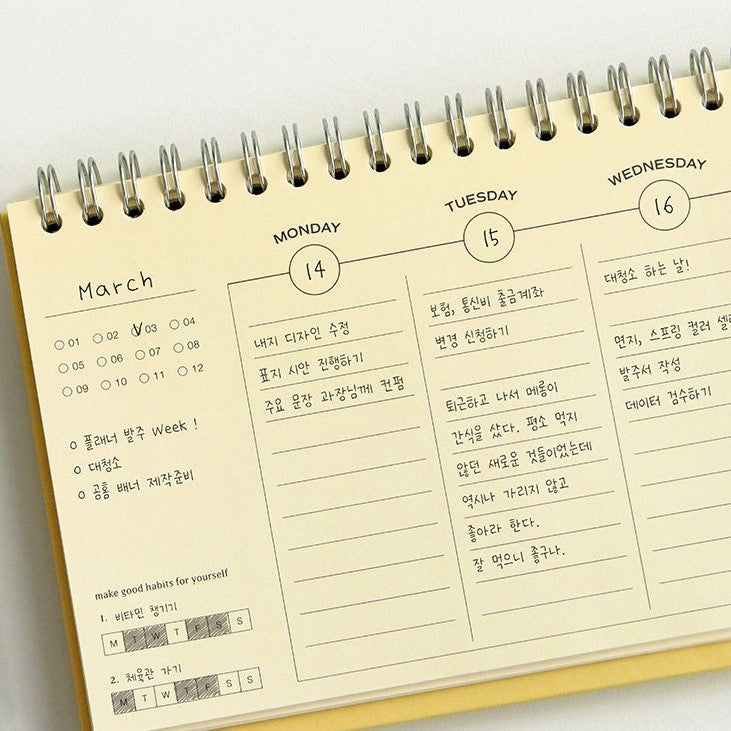 March
01 02 03 04
05 06 07 08
09 10 11 12
플래너 발주 Week !
대청소
공홈 배너 제작준비
make good habits for yourself
1. 비타민 챙기기
M T W T F S S
2. 체육관 가기
M T W T F S S
MONDAY
14
내지 디자인 수정
표지 시안 진행하기
주요 문장 과장님께 컨펌
TUESDAY
15
보험, 통신비 출금계좌
변경 신청하기
퇴근하고 나서 메롱이
간식을 샀다. 평소 먹지
않던 새로운 것들이었는데
역시나 가리지 않고
좋아라 한다.
잘 먹으니 좋구나.
WEDNESDAY
16
대청소 하는 날!
면지, 스프링 컬러 셀렉
발주서 작성
데이터 검수하기